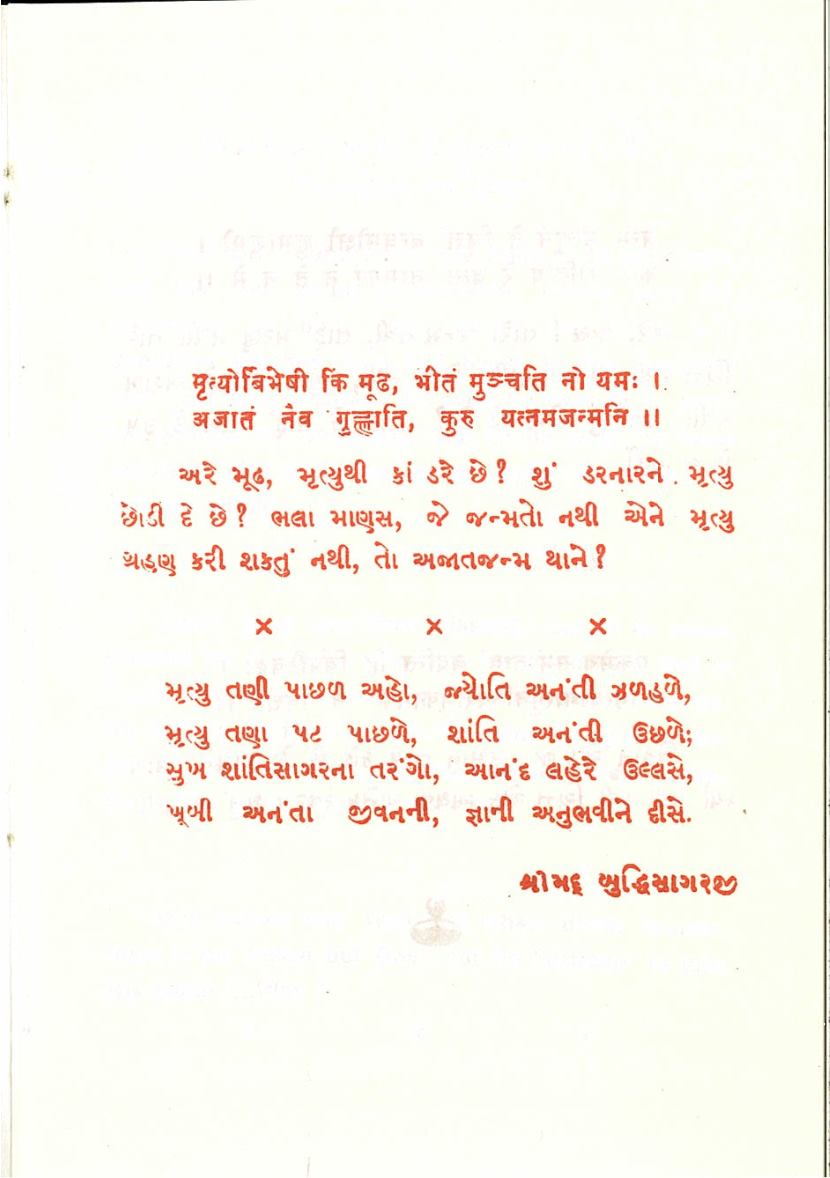 मृत्योर्बिभेषी किं मूढ, भीतं मुञ्चति नो यमः ।
अजातं नैव गृह्णाति, कुरु यत्नमजन्मनि ।।
અરે મૂઢ, મૃત્યુથી કાં ડરે છે? શું ડરનારને મૃત્યુ
છોડી દે છે? ભલા માણસ, જે જન્મતો નથી એને મૃત્યુ
ગ્રહણ કરી શકતું નથી, તો અજાતજન્મ થાને?
× × ×
મૃત્યુ તણી પાછળ અહો, જ્યોતિ અનંતી ઝળહળે,
મૃત્યુ તણા પટ પાછળે, શાંતિ અનંતી ઉછળે;
સુખ શાંતિસાગરના તરંગો, આનંદ લહેરે ઉલ્લસે,
ખૂબી અનંતા જીવનની, જ્ઞાની અનુભવીને દીસે.
શ્રીમદ્ બુદ્ધિસાગરજી